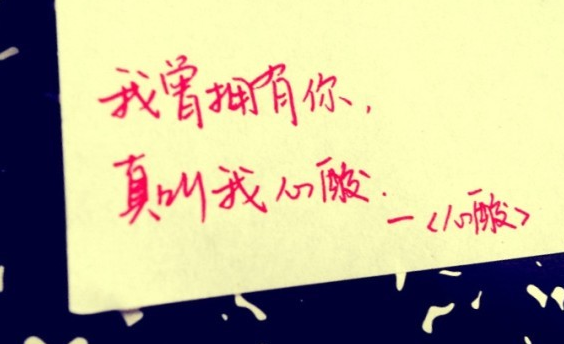 我曾拥有你,
真叫我心酸.
—<心酸>